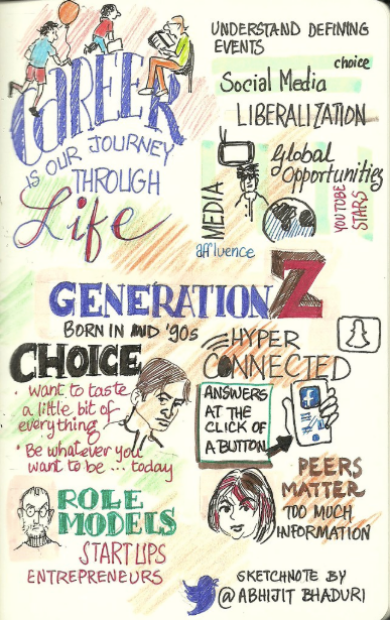 CAREER
IS OUR JOURNEY
THROUGH
Life
UNDERSTAND DEFINING
EVENTS
choice
Social Media
LIBERALIZATION
MEDIA
Global
Opportunities
YOUTUBE
STARS
affluence
GENERATION Z
BORN IN MID '90s
CHOICE
• want to taste
a little bit of
everything
• Be whatever you
want to be ... today
HYPER
CONNECTED
ANSWERS
AT THE
CLICK OF
A BUTTON
f
ROLE
MODELS
STARTUPS
ENTREPRENEURS
PEERS
MATTER
TOO MUCH
INFORMATION
SKETCHNOTE BY
@ABHIJIT BHADURI